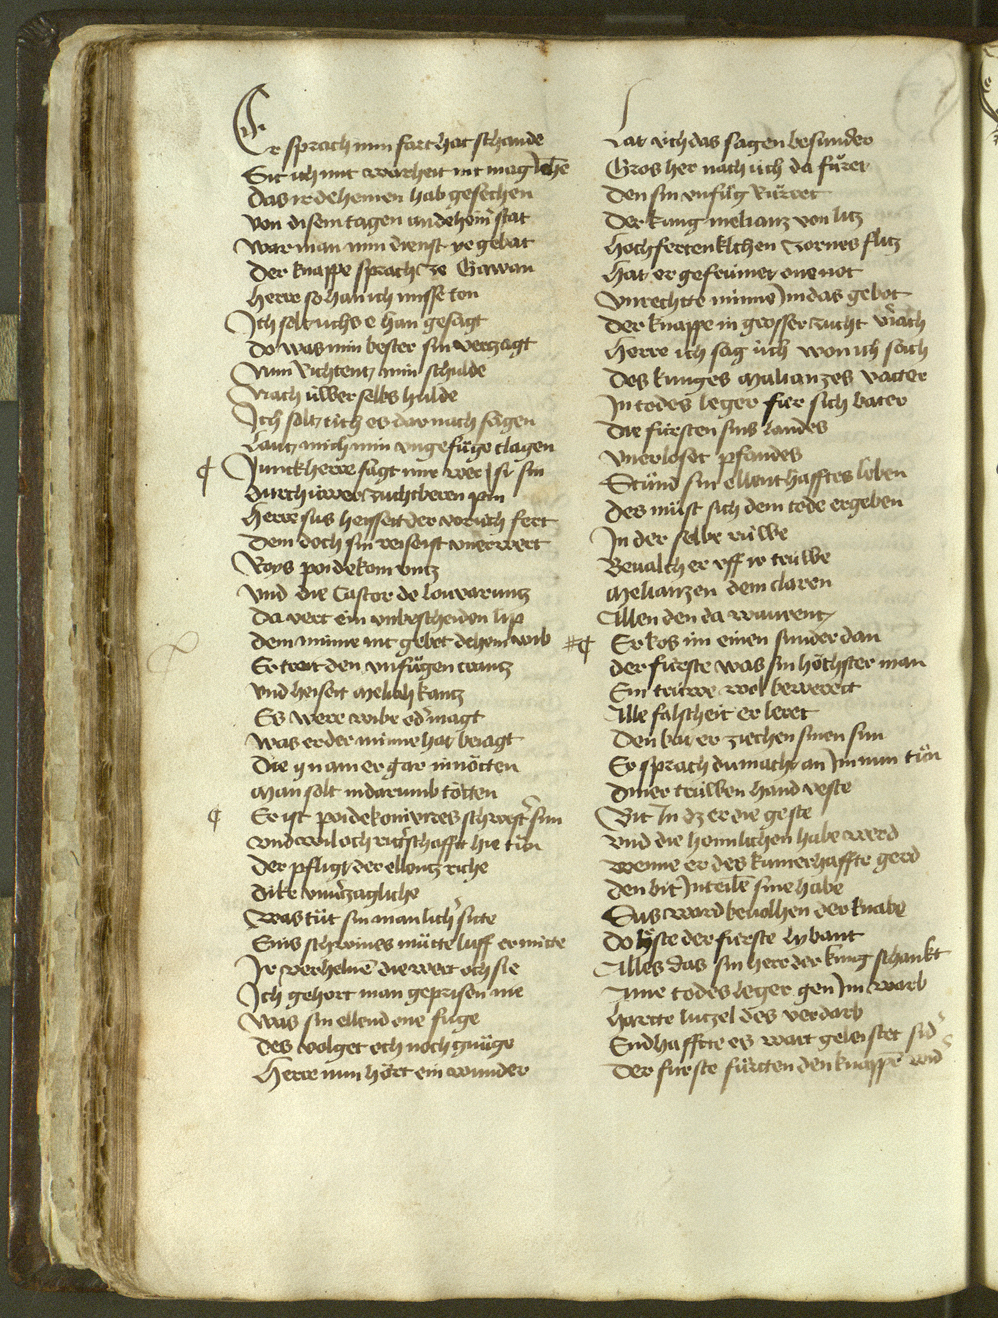 Er sprach min fart hat schande
Sit ich mit warheit nit mag iehē
Das ir dehemen hab gesechen
Von disem tagen an dehōm stat
War man min dienst ye gebat
Der knappe sprach ze Gawan
Herre so han ich misse ton
Ich solt uchs e han gesagt
Do was min bester sin verzagt
Nun richtentz min schulde
Nach üwer selbs hulde
Ich soltz üch es dar nach sagen
Lantz mich min ungefüge clagen
Junckherre sagt mir wer si sin
Durch üwer zuchtberen pin
Herre sus heysset der vor üch fert
Dem doch sin reise ist unerwert
Roys poidekomuntz
Und die Castor de louvaruntz
Da vert ein unbescheiden lip
Dem minne nit gebet dehein wib
Er treit den unfügen crantz
Und heiset Meliahkantz
Es were wibe oder magt
Was er der minne hat beiagt
Die nam er gar in nötten
Man solt in darumb tötten
Er ist poidekomiers schwester sun
Und wil och ritterschafft hie tün
Der pfligt der ellentz riche
Dike unverzagliche
Was tüt sin manlicher sitte
Sins schwines mütte luff er mitte
Ir verhelnē die wert och sie
Ich gehort man geprisen nie
Was sin ellend one füge
Des volget och noch gnüge
Herre nun hört ein wunder
Lat üch das sagen besunder
Gros her nach üch da füret
Den sin unfüg rürret
Der kung melianz von litz
Hochfertenklichen zornes flitz
Hat er gefrumet one not
Unrechtte minne Im das gebot
Der knappe in grosser zucht veriach
Herre ich sag üch won ich sach
Des kunges Malianzes vatter
In todes leger fier sich bater
Die fürsten sins landes
Unerloset pfandes
Stünd sin ellenthafftes leben
Des müst sich dem tode ergeben
In der selbe rüwe
Bevalch er uff ir trüwe
Melianzen dem claren
Allen den da warent
Er kos im einen sunder dan
Der fürste was sin höchster man
Ein trüwe wol bewerett
Alle falscheit er leret
Den bat er ziechen sinen sun
Er sprach du macht an Im nun tün
Diner trüwen hand veste
Bit In dz er die geste
Und die heimlichen habe werd
Wenne er des kumerhaffte gerd
Den bit In teilē sine habe
Sus ward bevolhen der knabe
Do löste der fierste lybaut
Alles das sin herr der kung schankt
Ane todes leger gen Im warb
Hartte lutzel des verdarb
Endhafftte es wart geleistet sider
Der fürste fürtten den knappē wider